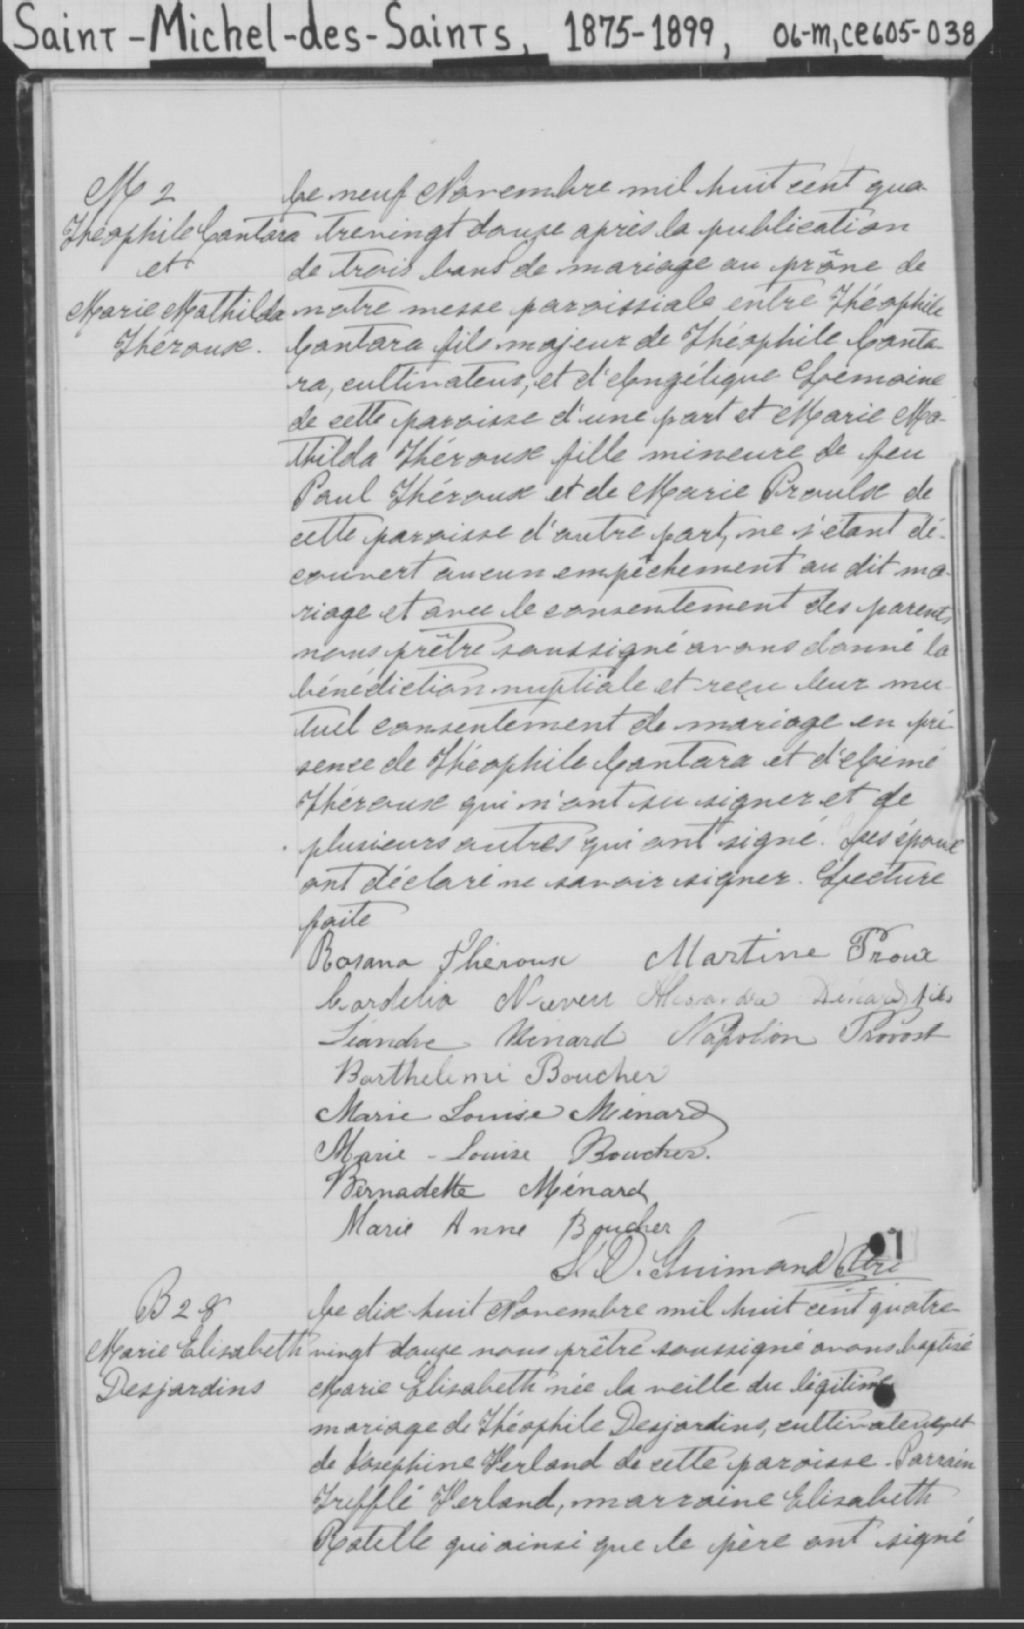 Saint-Michel-des-Saints, 1875-1899, 06-M,CE605-038
M 2
Théophile Cantara
et
Marie Mathilda
Théroux.
Le neuf Novembre mil huit cent qua-
trevingt douze après la publication
de trois bans de mariage au prône de
notre messe paroissiale entre Théophile
Cantara fils majeur de Théophile Canta-
ra, cultivateur, et d'Angélique Lemoine
de cette paroisse d'une part et Marie Ma-
thilda Théroux fille mineure de feu
Paul Théroux et de Marie Proulx de
cette paroisse d'autre part, ne s'étant dé-
couvert aucun empêchement au dit ma-
riage et avec le consentement des parents
nous prêtre soussigné avons donné la
bénédiction nuptiale et reçu leur mu-
tuel consentement de mariage en pré-
sence de Théophile Cantara et d'Aimé
Théroux qui n'ont su signer et de
plusieurs autres qui ont signé. Les époux
ont déclaré ne savoir signer. Lecture
faite
Rosana Théroux Martine Proux
Cordelia Neveu Ménard fils
Léandre Ménard Napoléon Provost
Barthelemi Boucher
Marie Louise Ménard
Marie-Louise Boucher.
Bernadette Ménard
Marie Anne Boucher
L. O. Guimand Ptre
B 28
Marie Elisabeth
Desjardins
Le dix-huit Novembre mil huit cent quatre-
vingt douze nous prêtre soussigné avons baptisé
Marie Elisabeth née la veille du légitime
mariage de Théophile Desjardins, cultivateur, et
de Joséphine Ferland de cette paroisse. Parrain
Trefflé Ferland, marraine Elisabeth
Ratelle qui ainsi que le père ont signé